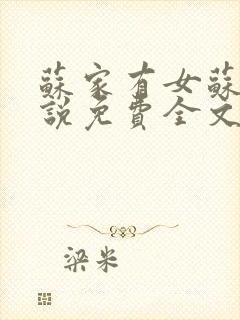 蘇家有女蘇
說免費全文
梁米